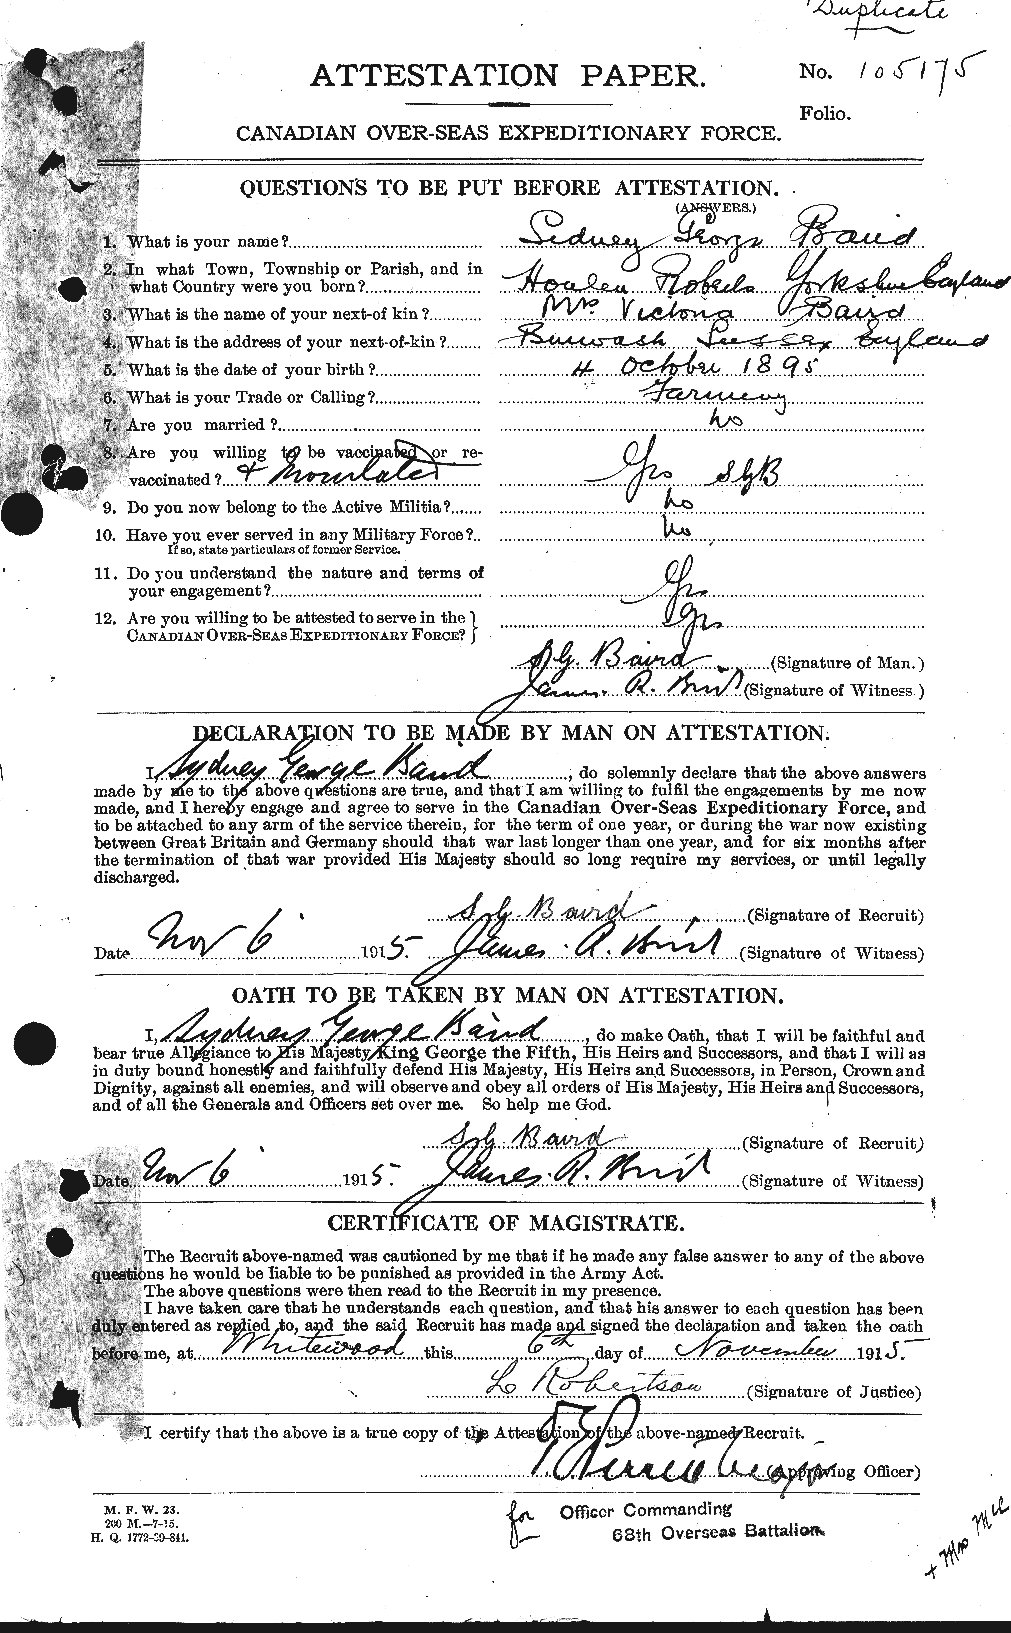 Duplicate
ATTESTATION PAPER.
No. 105175
Folio.
CANADIAN OVER-SEAS EXPEDITIONARY FORCE.
QUESTIONS TO BE PUT BEFORE ATTESTATION.
(ANSWERS.)
1. What is your name? Sidney George Baird
2. In what Town, Township or Parish, and in
what Country were you born? Yorkshire England
3. What is the name of your next-of kin? Mrs Victoria Baird
4. What is the address of your next-of-kin? Burwash Sussex England
5. What is the date of your birth? 4 October 1895
6. What is your Trade or Calling? Farming
7. Are you married? No
8. Are you willing to be vaccinated or re-
vaccinated? + Inoculated Yes SGB
9. Do you now belong to the Active Militia? No
10. Have you ever served in any Military Force? No
If so, state particulars of former Service.
11. Do you understand the nature and terms of
your engagement? Yes
12. Are you willing to be attested to serve in the
CANADIAN OVER-SEAS EXPEDITIONARY FORCE? } Yes
S G. Baird (Signature of Man.)
James R. (Signature of Witness.)
DECLARATION TO BE MADE BY MAN ON ATTESTATION.
I, Sydney George Baird, do solemnly declare that the above answers
made by me to the above questions are true, and that I am willing to fulfil the engagements by me now
made, and I hereby engage and agree to serve in the Canadian Over-Seas Expeditionary Force, and
to be attached to any arm of the service therein, for the term of one year, or during the war now existing
between Great Britain and Germany should that war last longer than one year, and for six months after
the termination of that war provided His Majesty should so long require my services, or until legally
discharged.
S G Baird (Signature of Recruit)
Date Nov 6 1915. James R. (Signature of Witness)
OATH TO BE TAKEN BY MAN ON ATTESTATION.
I, Sydney George Baird, do make Oath, that I will be faithful and
bear true Allegiance to His Majesty King George the Fifth, His Heirs and Successors, and that I will as
in duty bound honestly and faithfully defend His Majesty, His Heirs and Successors, in Person, Crown and
Dignity, against all enemies, and will observe and obey all orders of His Majesty, His Heirs and Successors,
and of all the Generals and Officers set over me. So help me God.
S G Baird (Signature of Recruit)
Date Nov 6 1915. James R. (Signature of Witness)
CERTIFICATE OF MAGISTRATE.
The Recruit above-named was cautioned by me that if he made any false answer to any of the above
questions he would be liable to be punished as provided in the Army Act.
The above questions were then read to the Recruit in my presence.
I have taken care that he understands each question, and that his answer to each question has been
duly entered as replied to, and the said Recruit has made and signed the declaration and taken the oath
before me, at Whitewood this 6th day of November 1915.
L Robertson (Signature of Justice)
I certify that the above is a true copy of the Attestation of the above-named Recruit.
(Approving Officer)
M. F. W. 23.
200 M.—7-15.
H. Q. 1772-39-841.
for Officer Commanding
68th Overseas Battalion